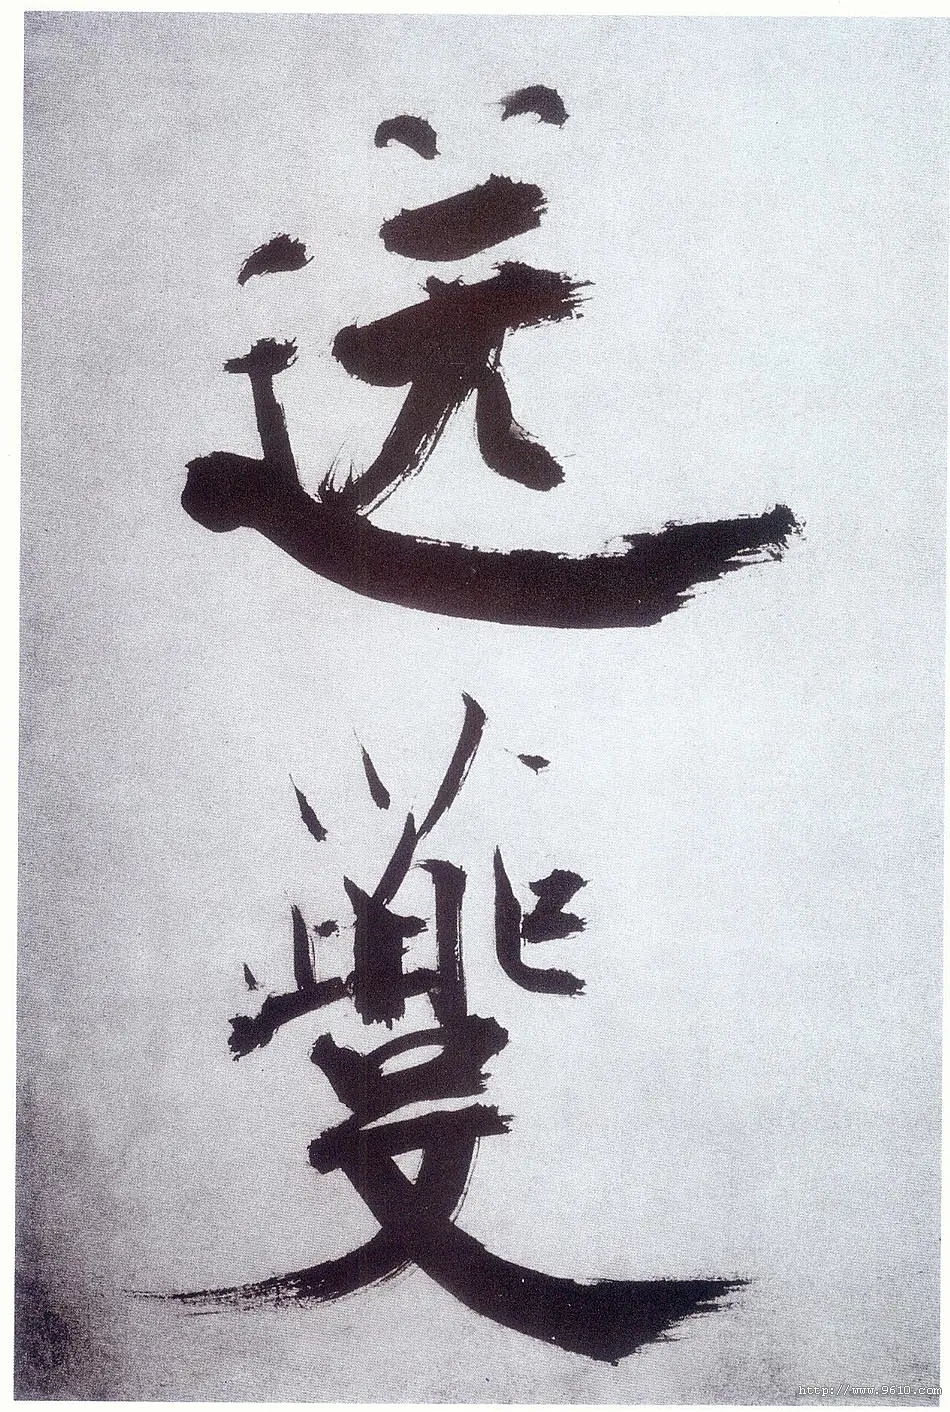 送
夔
http://www.9610.com